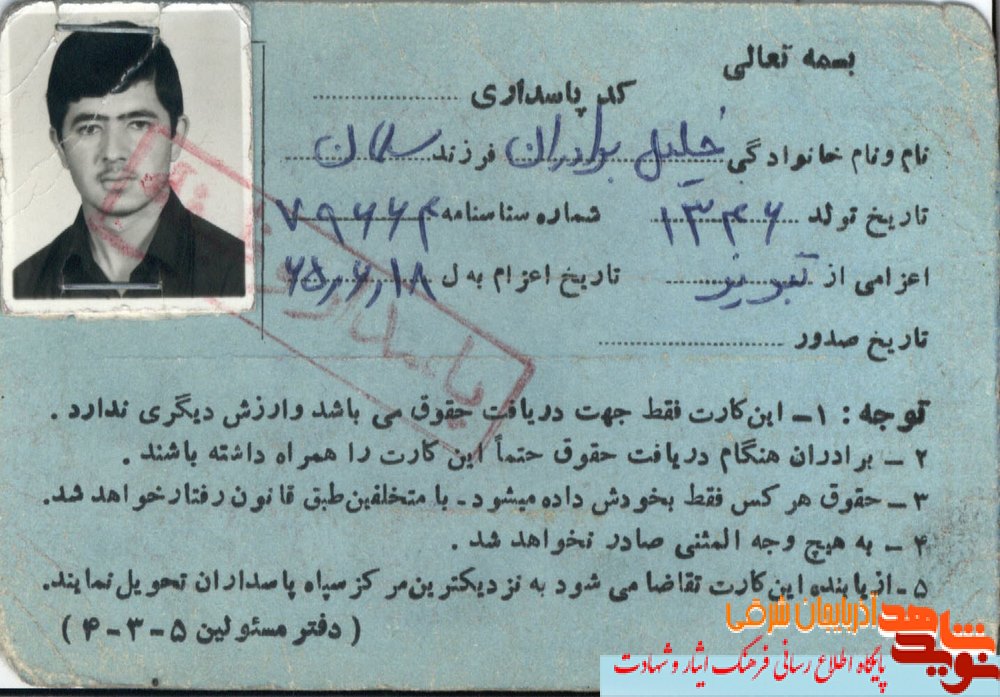 بسمه تعالی
کد پاسداری
نام و نام خانوادگی خلیل برادران فرزند سلمان
تاریخ تولد ۱۳۴۶ شماره سناسنامه ۷۹۶۶۴
اعزامی از تبریز تاریخ اعزام به ل ۶۵٫۶٫۱۸
تاریخ صدور
پاسدار
توجه : ۱ـ این کارت فقط جهت دریافت حقوق می باشد و ارزش دیگری ندارد .
۲ ـ برادران هنگام دریافت حقوق حتماً این کارت را همراه داشته باشند .
۳ ـ حقوق هر کس فقط بخودش داده میشود ـ با متخلفین طبق قانون رفتار خواهد شد.
۴ ـ به هیچ وجه المثنی صادر نخواهد شد .
۵ ـ از یابنده این کارت تقاضا می شود به نزدیکترین مرکز سپاه پاسداران تحویل نمایند.
( دفتر مسئولین ۵ ـ ۳ ـ ۴ )
نوید شاهد آذربایجان شرقی
پایگاه اطلاع رسانی فرهنگ ایثار و شهادت